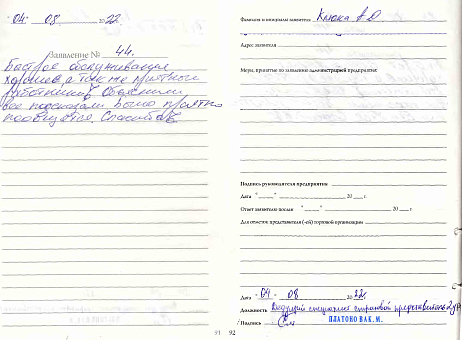 04 08 2022.
Заявление № 44.
Быстрое обслуживание
хорошее, а так же приятной
работницей, объяснили
все подсказали было приятно
пообщаться. Спасибо
91
Фамилия и инициалы заявителя Клюка А О
Адрес заявителя
Меры, принятые по заявлению администрацией предприятия:
Подпись руководителя предприятия
Дата "___" 20 г.
Ответ заявителю послан "___" 20 г.
Для отметок представителя (-ей) торговой организации
Дата 04 08 2022г.
Должность Ведущий специалист страховой представитель 2 ур
Подпись ПЛАТОНОВА К. М.
92